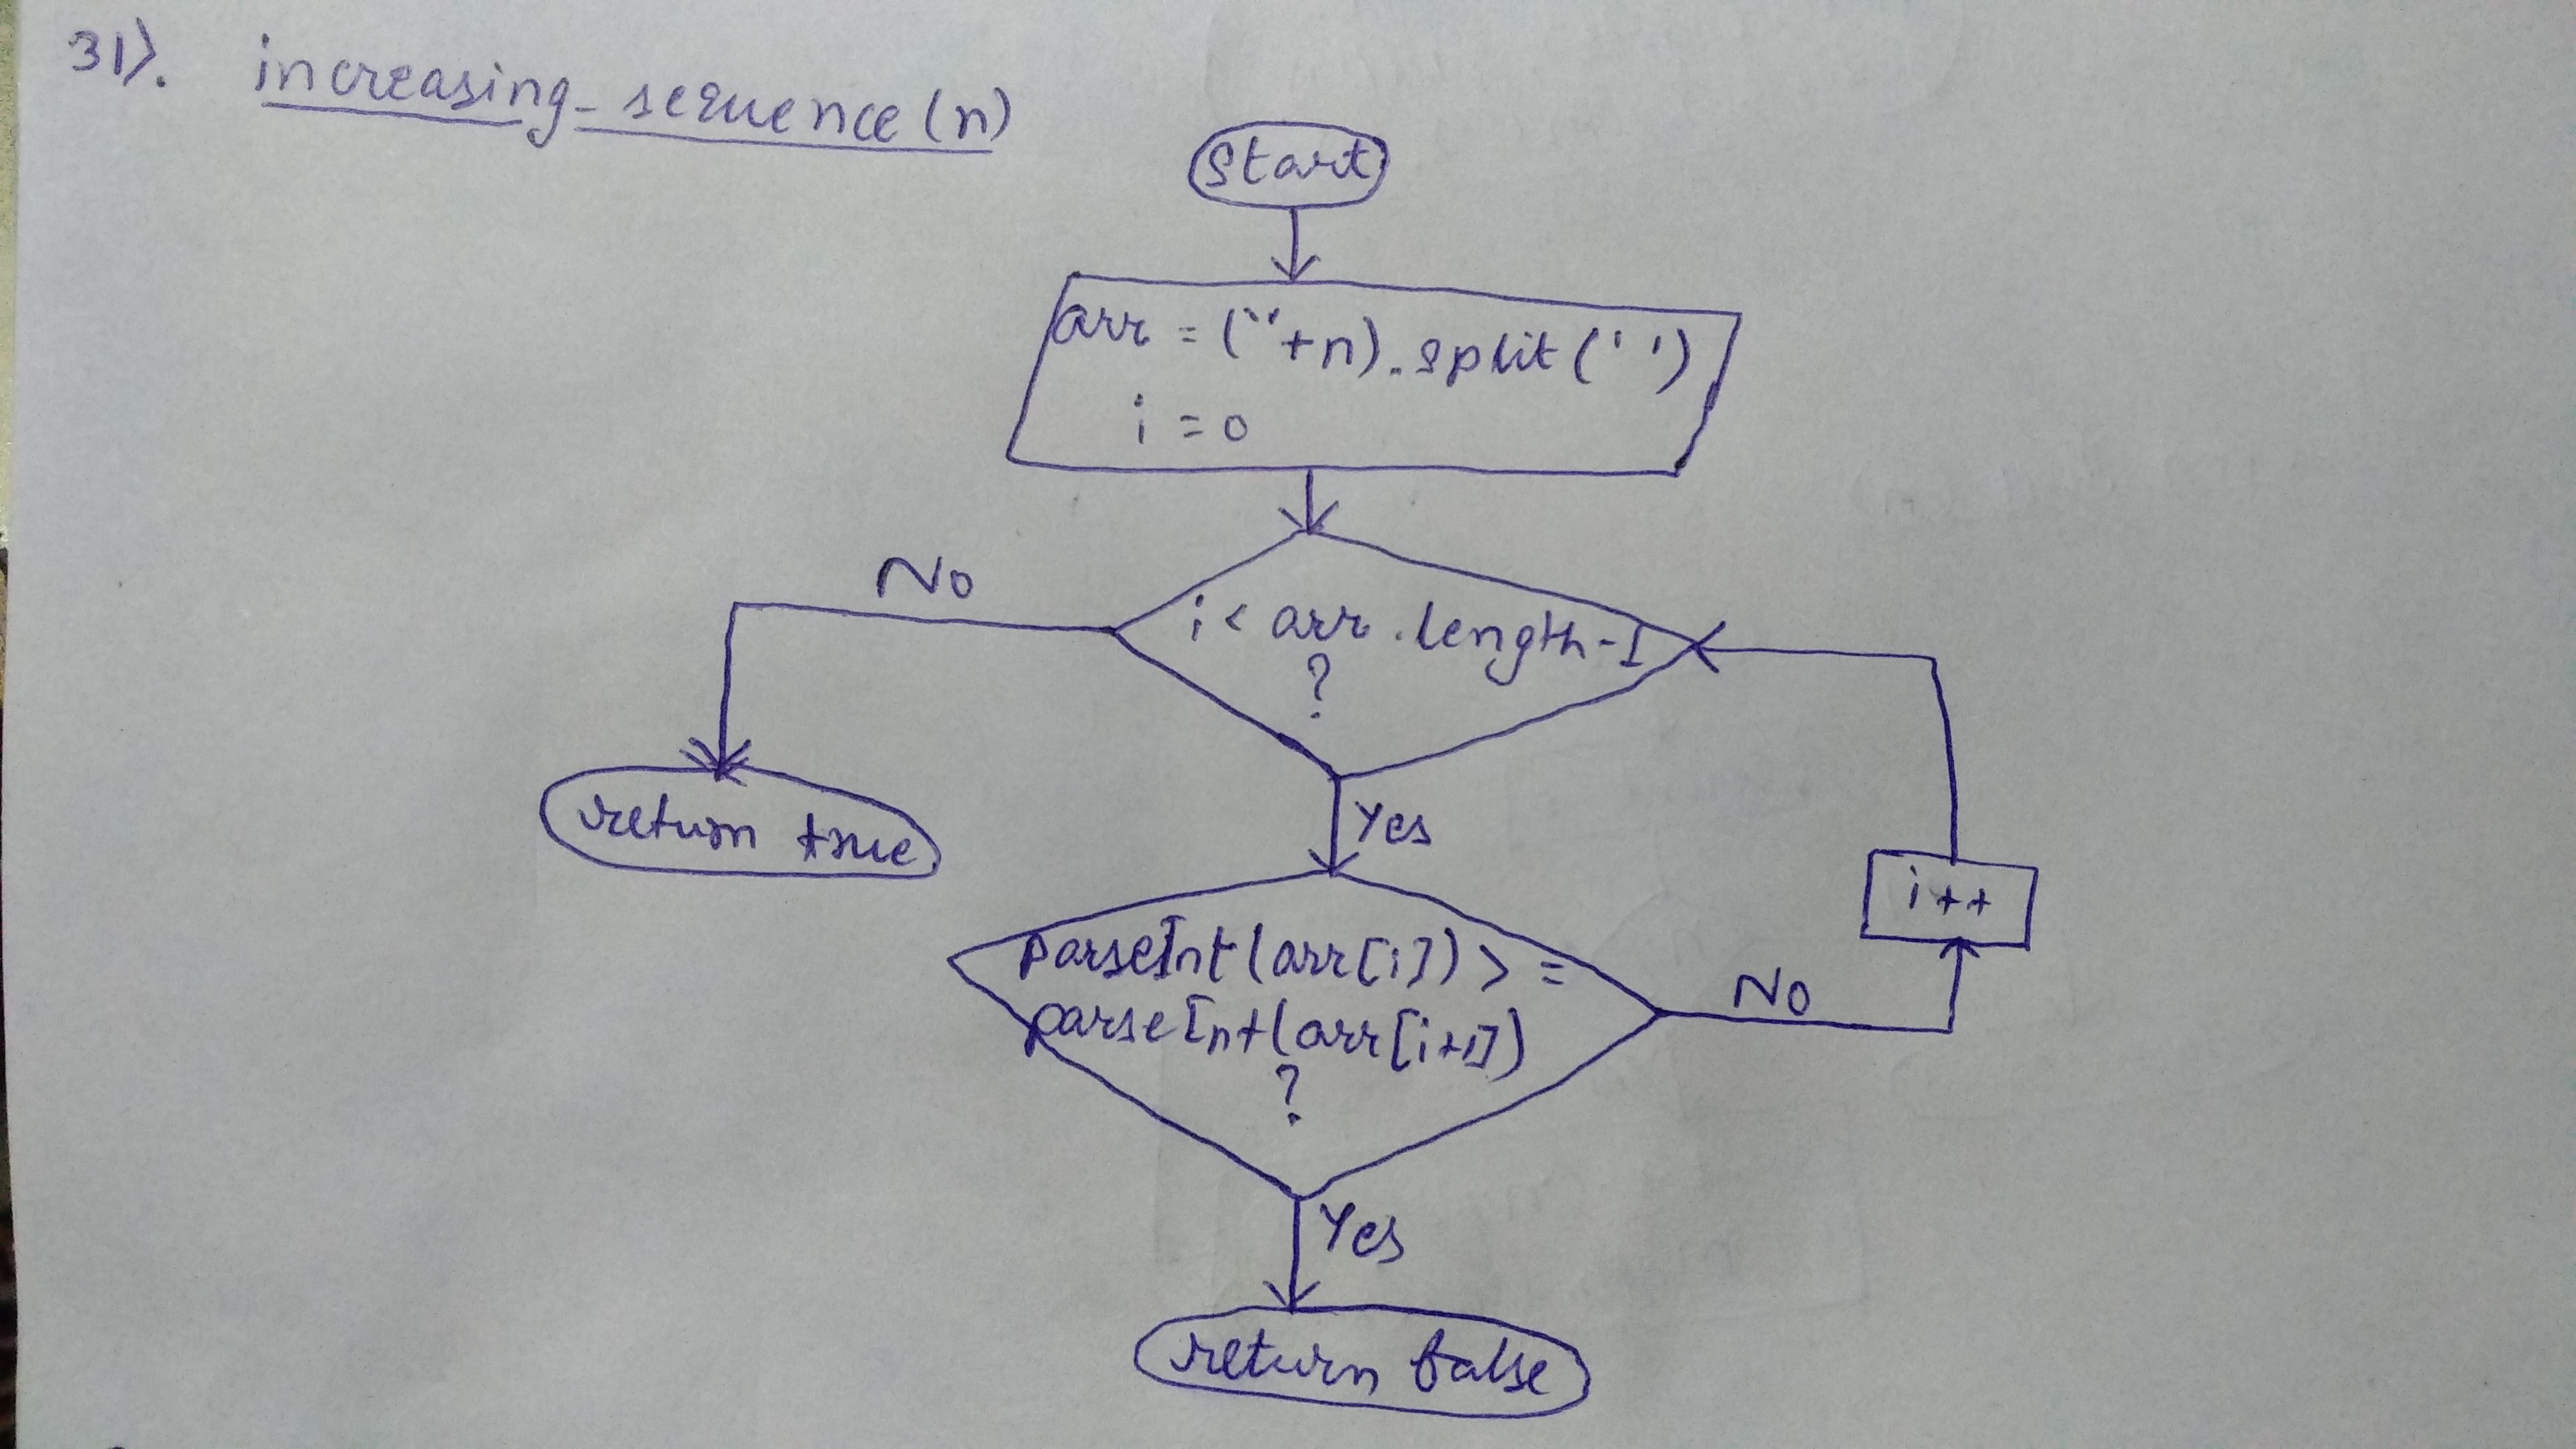 31). increasing_sequence(n)
start
arr = (""+n).split('')
i = 0
No
i < arr.length-1
?
return true
Yes
i++
parseInt(arr[i]) >=
parseInt(arr[i+1])
?
No
Yes
return false